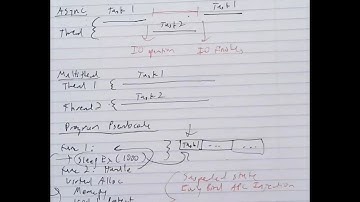 Async Task 1 Task 1
Thread Task 2
IO operation IO finishes
Multithread Task 1
Thread 1
Thread 2 Task 2
Program Pseudocode
func 1: Task 1 ... ...
+ Sleep Ex (1000)
func 2: Handle
Virtual Alloc Suspended state
Memcpy Early Bird APC Injection